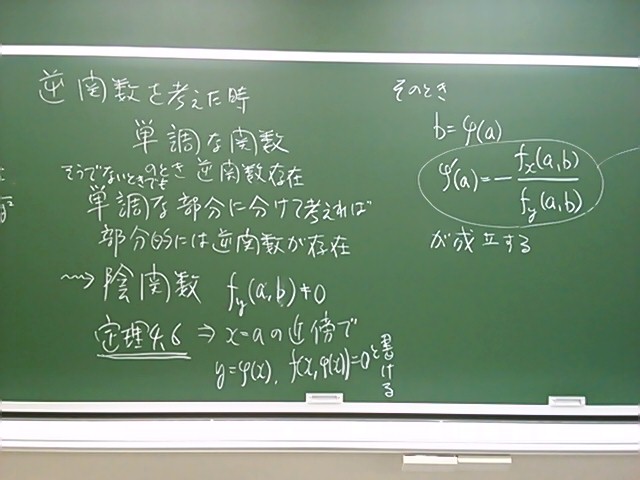 逆関数を考えた時
単調な関数
のとき 逆関数存在
そうでないときでも
単調な部分に分けて考えれば
部分的には逆関数が存在
⇝ 陰関数 f_y(a,b)≠0
定理4.6 ⇒ x=aの近傍で
y=φ(x), f(x,φ(x))=0と書ける
そのとき
b=φ(a)
φ'(a)=-f_x(a,b)/f_y(a,b)
が成立する